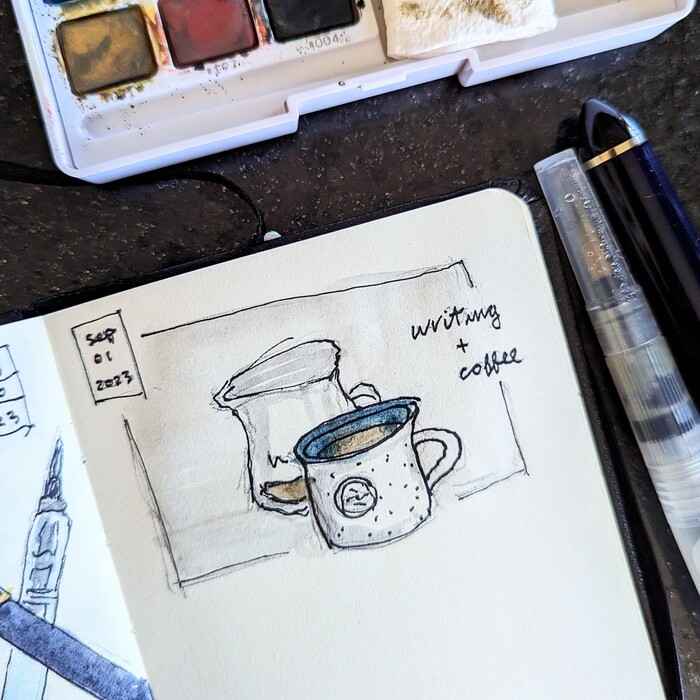 #004
sep
01
2023
writing
+
coffee
23